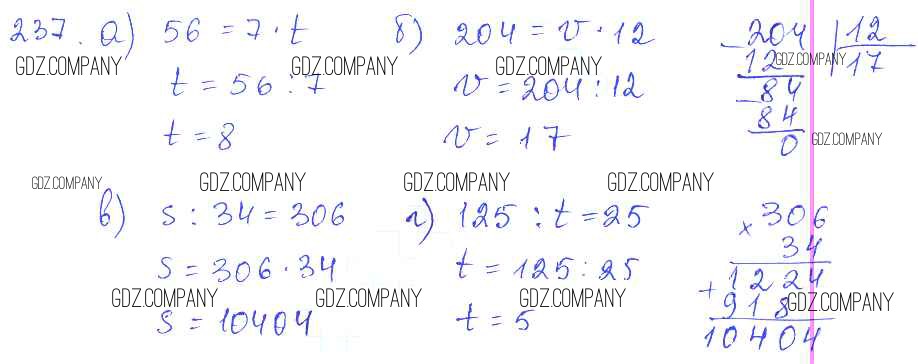 237. а) 56 = 7 · t б) 204 = v · 12 204 | 12
GDZ.COMPANY GDZ.COMPANY GDZ.COMPANY GDZ.COMPANY
t = 56 : 7 v = 204 : 12 - 12 17
- 84
t = 8 v = 17 84
0 GDZ.COMPANY
GDZ.COMPANY GDZ.COMPANY GDZ.COMPANY GDZ.COMPANY
в) s : 34 = 306 г) 125 : t = 25 × 306
34
s = 306 · 34 t = 125 : 25 + 1224
GDZ.COMPANY GDZ.COMPANY GDZ.COMPANY 918 GDZ.COMPANY
s = 10404 t = 5 10404